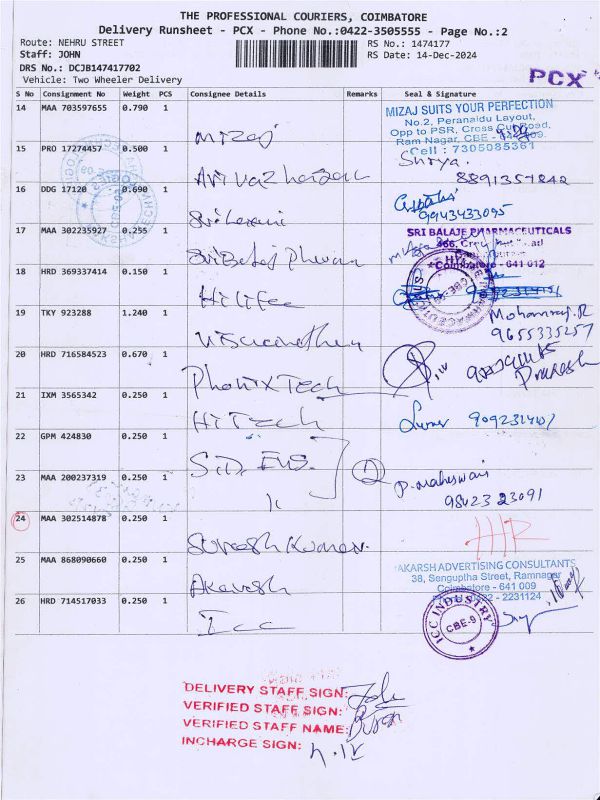 THE PROFESSIONAL COURIERS, COIMBATORE
Delivery Runsheet - PCX - Phone No.:0422-3505555 - Page No.:2
Route: NEHRU STREET
RS No.: 1474177
Staff: JOHN
RS Date: 14-Dec-2024
DRS No.: DCJB147417702
Vehicle: Two Wheeler Delivery
PCX
S No Consignment No Weight PCS Consignee Details Remarks Seal & Signature
14 MAA 703597655 0.790 1 Mizaj
MIZAJ SUITS YOUR PERFECTION
No.2, Peranaidu Layout,
Opp to PSR, Cross Cut Road,
Ram Nagar, CBE -
Cell : 7305085361
15 PRO 17274457 0.500 1
Shrya.
8891357842
16 DDG 17120 0.690 1 Srilaxmi
9943433095
17 MAA 302235927 0.255 1 Sri Balaj Pharma
SRI BALAJE PHARMACEUTICALS
Coimbatore - 641 012
18 HRD 369337414 0.150 1 Hilifee
19 TKY 923288 1.240 1 Viswanathan
Mohanraj.R
9655335257
20 HRD 716584523 0.670 1 Phonix Tech
Prakash
21 IXM 3565342 0.250 1 Hi Tech
22 GPM 424830 0.250 1
23 MAA 200237319 0.250 1
2
P. Maheswari
98423 23091
24 MAA 302514878 0.250 1 Suresh Kumar.
25 MAA 868090660 0.250 1 Akarsh
AKARSH ADVERTISING CONSULTANTS
38, Senguptha Street, Ramnagar
Coimbatore - 641 009
2231124
26 HRD 714517033 0.250 1 Icc
ICC INDUSTRY
CBE-9
DELIVERY STAFF SIGN:
VERIFIED STAFF SIGN:
VERIFIED STAFF NAME:
INCHARGE SIGN: